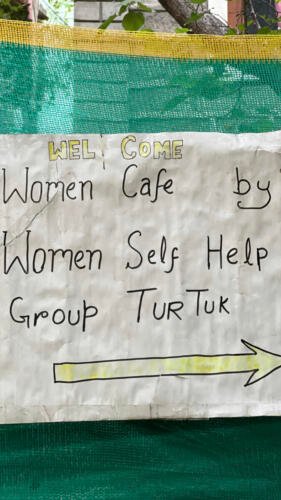 WELCOME
Women Cafe by
Women Self Help
Group TURTUK